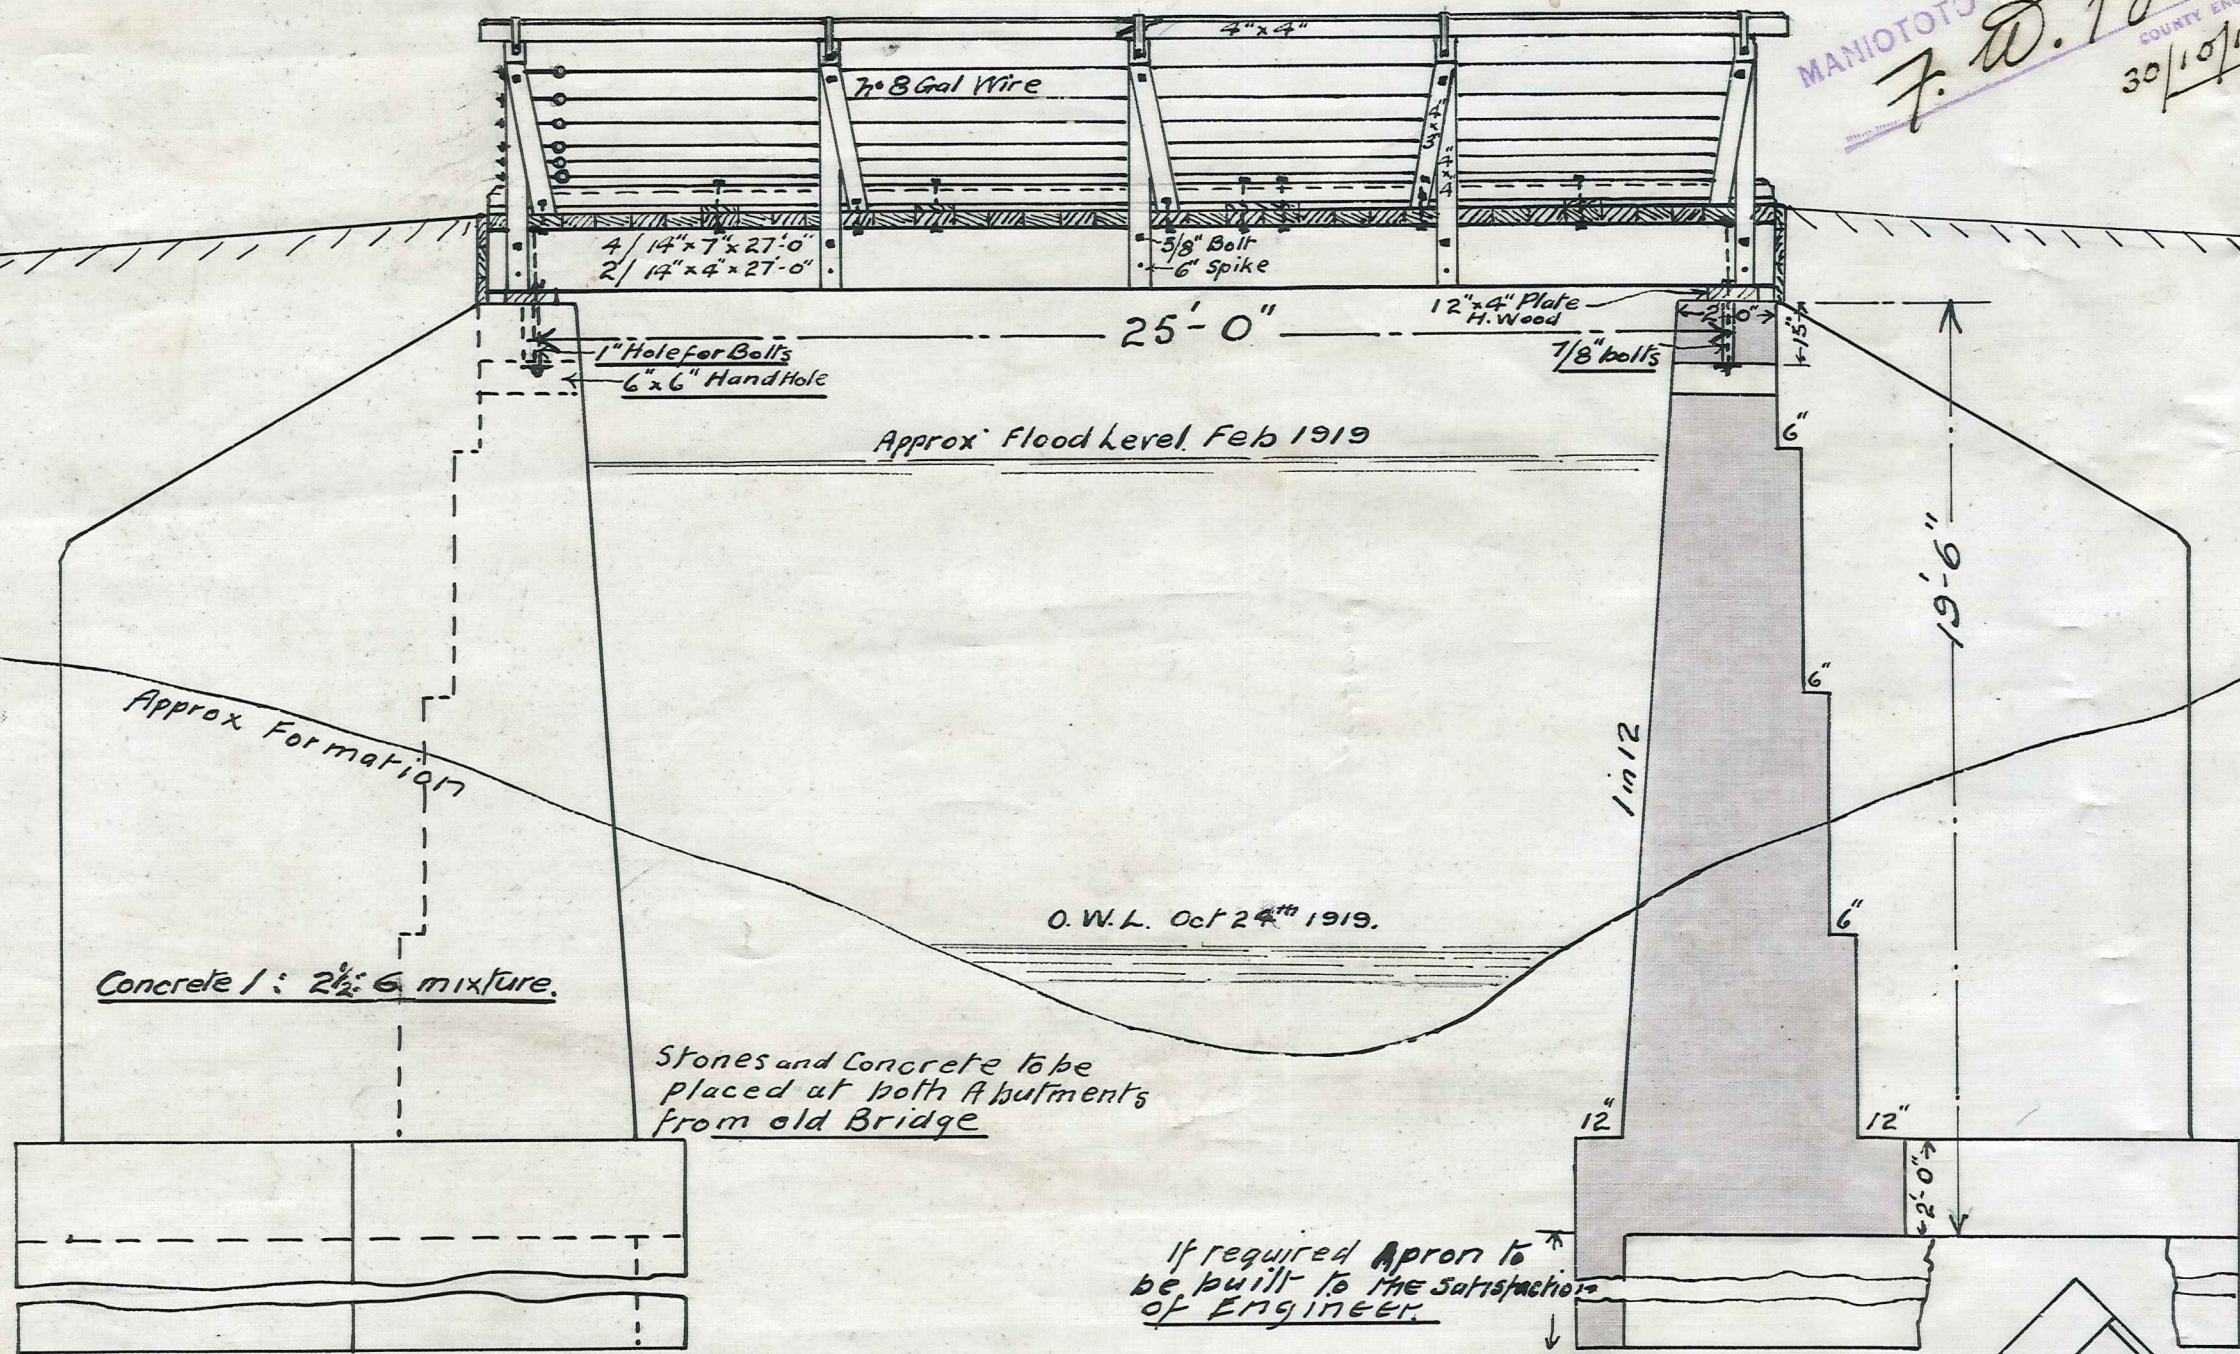 MANIOTOTO
COUNTY
F. W.
30/10/
4" x 4"
No 8 Gal Wire
3" x 2"
4" x 4"
4/ 14" x 7" x 27'-0"
2/ 14" x 4" x 27'-0"
5/8" Bolt
6" Spike
12" x 4" Plate
H. Wood
2'-0"
15"
25'-0"
1" Hole for Bolts
6" x 6" Hand Hole
7/8" bolts
Approx Flood Level Feb 1919
6"
19'-6"
6"
Approx Formation
1 in 12
O. W. L. Oct 24th 1919.
6"
Concrete 1 : 2½ : 6 mixture.
Stones and Concrete to be
placed at both Abutments
from old Bridge
12"
12"
2'-0"
If required Apron to
be built to the Satisfaction
of Engineer.